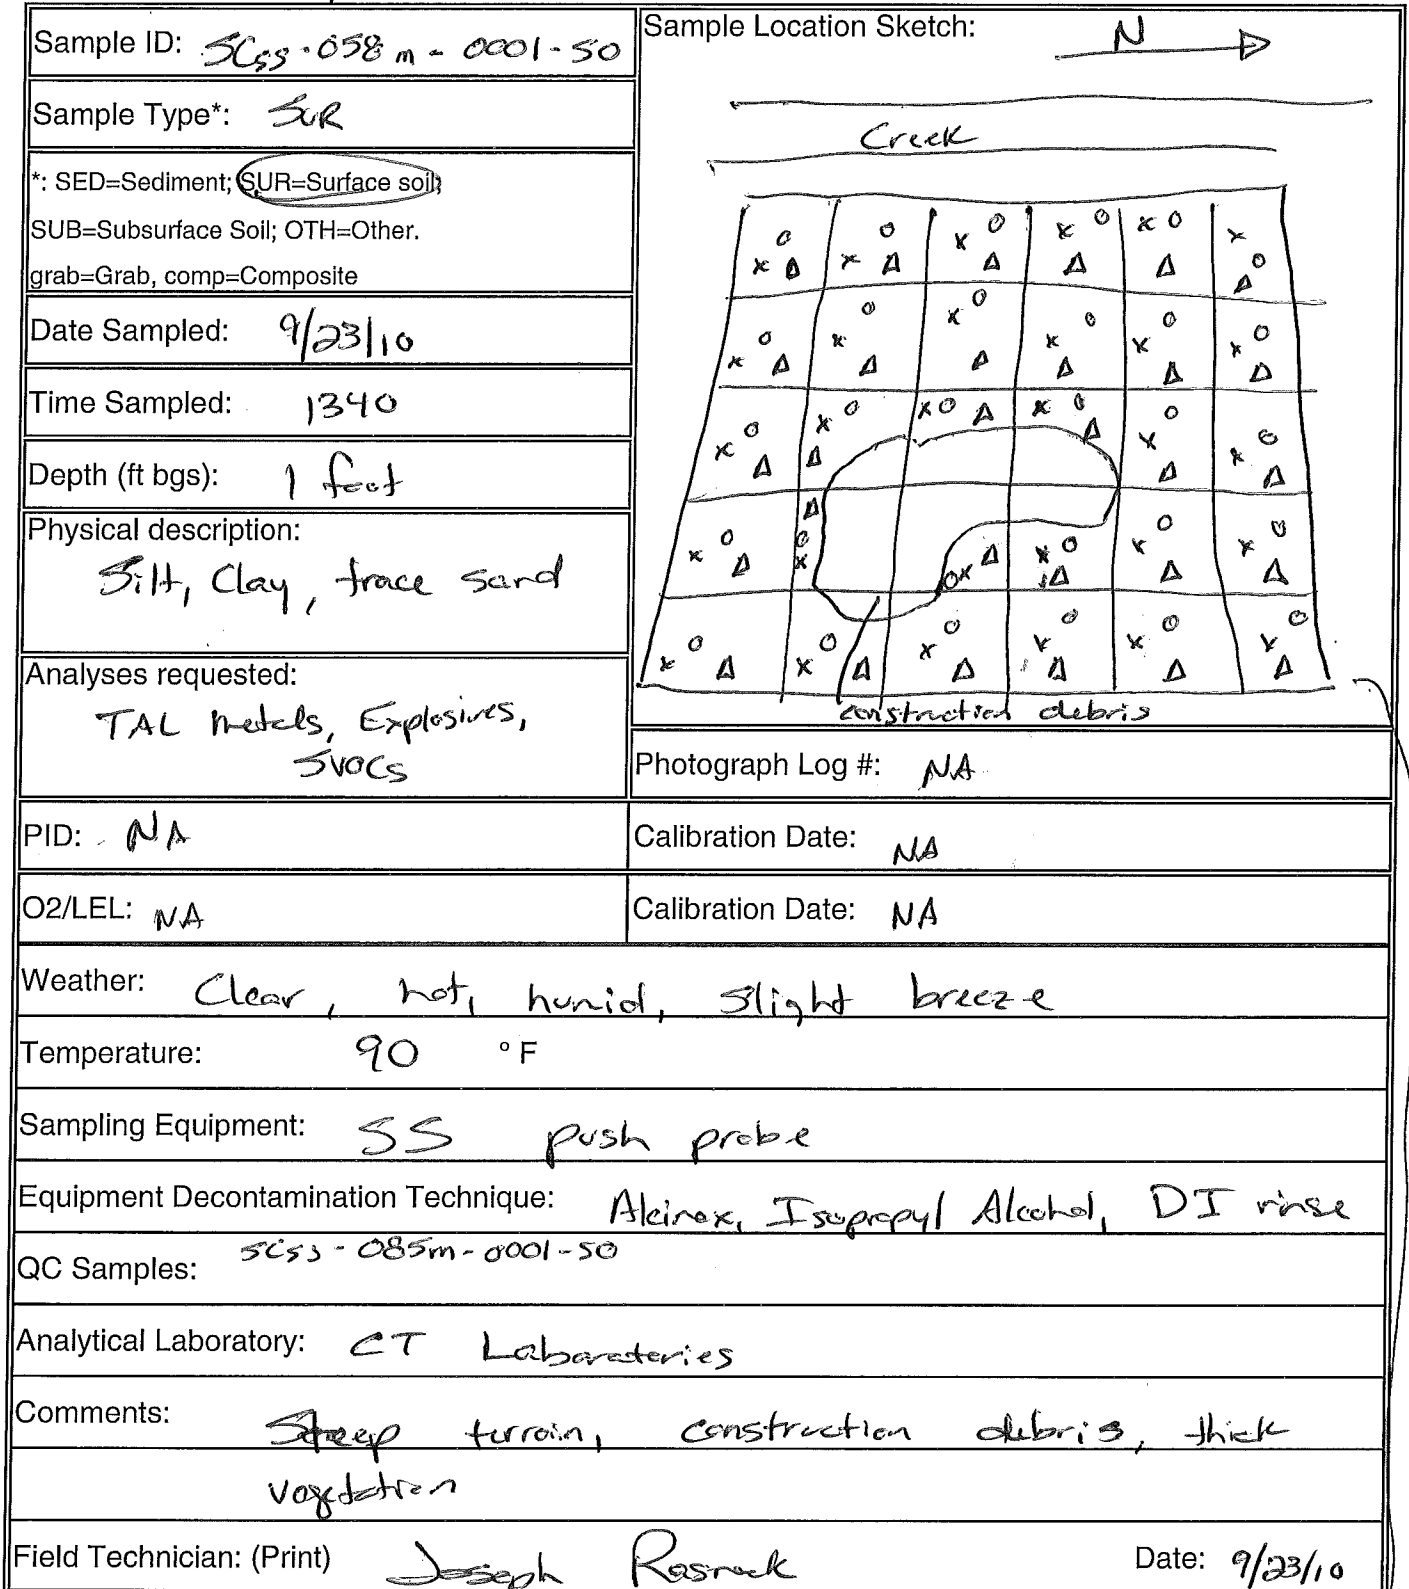 Sample ID: SCss-058m-0001-SO
Sample Type*: SUR
*: SED=Sediment; SUR=Surface soil;
SUB=Subsurface Soil; OTH=Other.
grab=Grab, comp=Composite
Date Sampled: 9/23/10
Time Sampled: 1340
Depth (ft bgs): 1 foot
Physical description:
Silt, Clay, trace sand
Analyses requested:
TAL metals, Explosives,
SVOCs
Sample Location Sketch: N
Creek
construction debris
Photograph Log #: NA
PID: NA
Calibration Date: NA
O2/LEL: NA
Calibration Date: NA
Weather: Clear, hot, humid, slight breeze
Temperature: 90 °F
Sampling Equipment: SS push probe
Equipment Decontamination Technique: Alcinox, Isopropyl Alcohol, DI rinse
QC Samples: SCss-085m-0001-SO
Analytical Laboratory: CT Laboratories
Comments: Steep terrain, construction debris, thick
vegetation
Field Technician: (Print) Joseph Date: 9/23/10